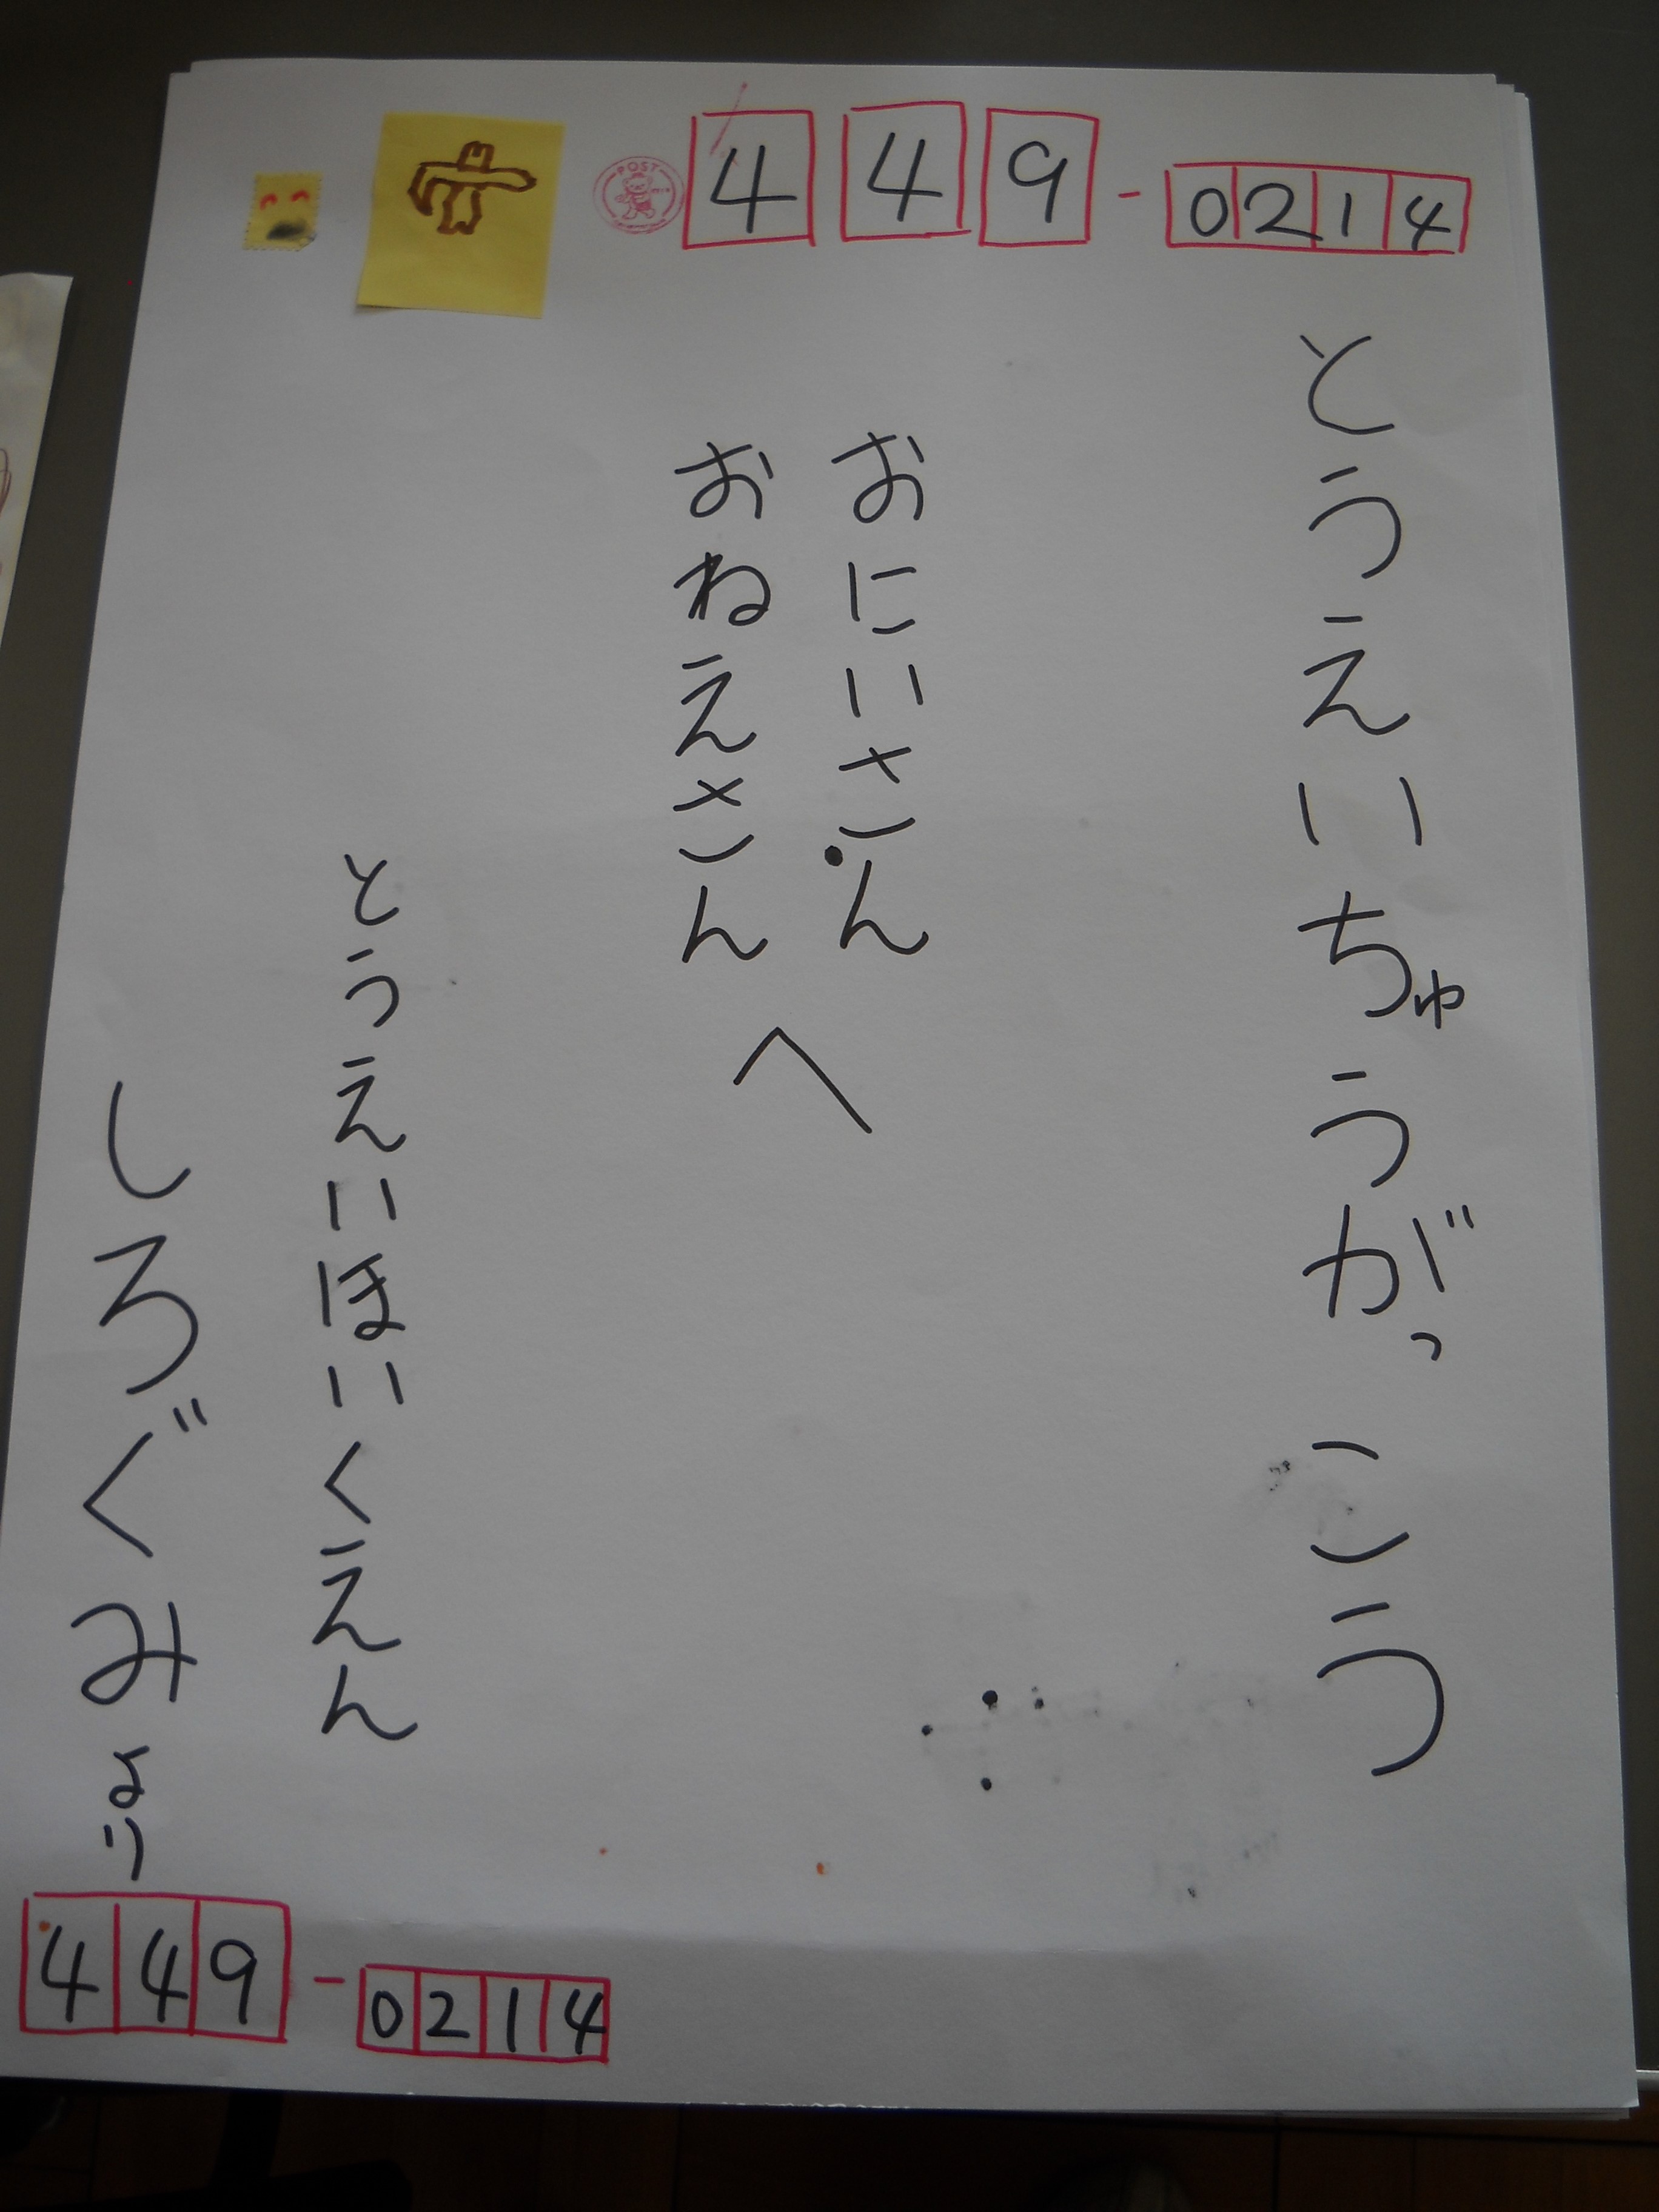 449-0214
とうえいちゅうがっこう
おにいさん
おねえさん
へ
とうえいほいくえん
しろぐみより
449-0214
POST